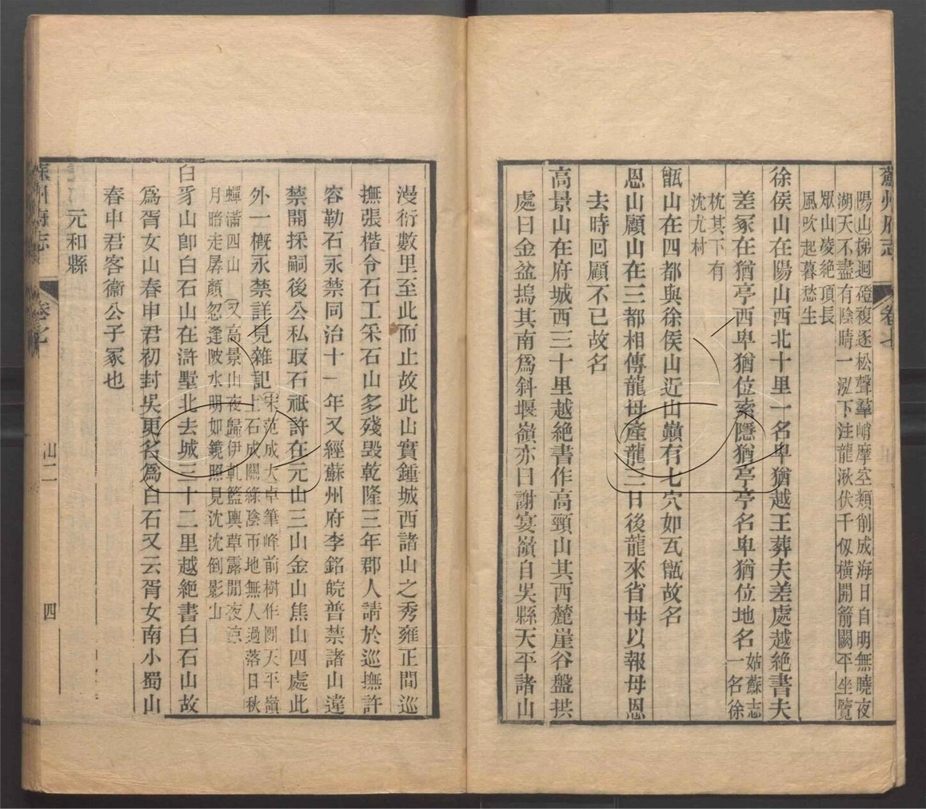 蘇州府志
卷七
陽山梯迴磴複逐松聲羣峭摩空類削成海日自明無曉夜
湖天不盡有陰晴一泓下注龍湫伏千仞橫開箭闕平坐覽
眾山凌絶頂長
風吹起暮愁生
徐侯山在陽山西北十里一名卑猶越王葬夫差處越絶書夫
差冢在猶亭西卑猶位索隱猶亭亭名卑猶位地名
姑蘇志
一名徐
枕其下有
沈尤村
甑山在四都與徐侯山近山巔有七穴如瓦甑故名
恩山顧山在三都相傳龍母產龍三日後龍來省母以報母恩
去時囘顧不已故名
高景山在府城西三十里越絶書作高頸山其西麓崖谷盤拱
處曰金盆塢其南爲斜堰嶺亦曰謝宴嶺自吳縣天平諸山
漫衍數里至此而止故此山實鍾城西諸山之秀雍正間巡
撫張楷令石工采石山多殘毀乾隆三年郡人請於巡撫許
容勒石永禁同治十一年又經蘇州府李銘皖普禁諸山違
禁開採嗣後公私取石祗許在元山三山金山焦山四處此
外一槪永禁詳見雜記
宋范成大卓筆峰前樹作團天平嶺
上石成關綠陰帀地無人過落日秋
蟬滿四山 又高景山夜歸伊軋籃輿草露間夜涼
月暗走孱顏忽逢陂水明如鏡照見沈沈倒影山
白豸山卽白石山在滸墅北去城三十二里越絶書白石山故
爲胥女山春申君初封吳更名爲白石又云胥女南小蜀山
春申君客衞公子冢也
元和縣
蘇州府志
卷七
山二
四